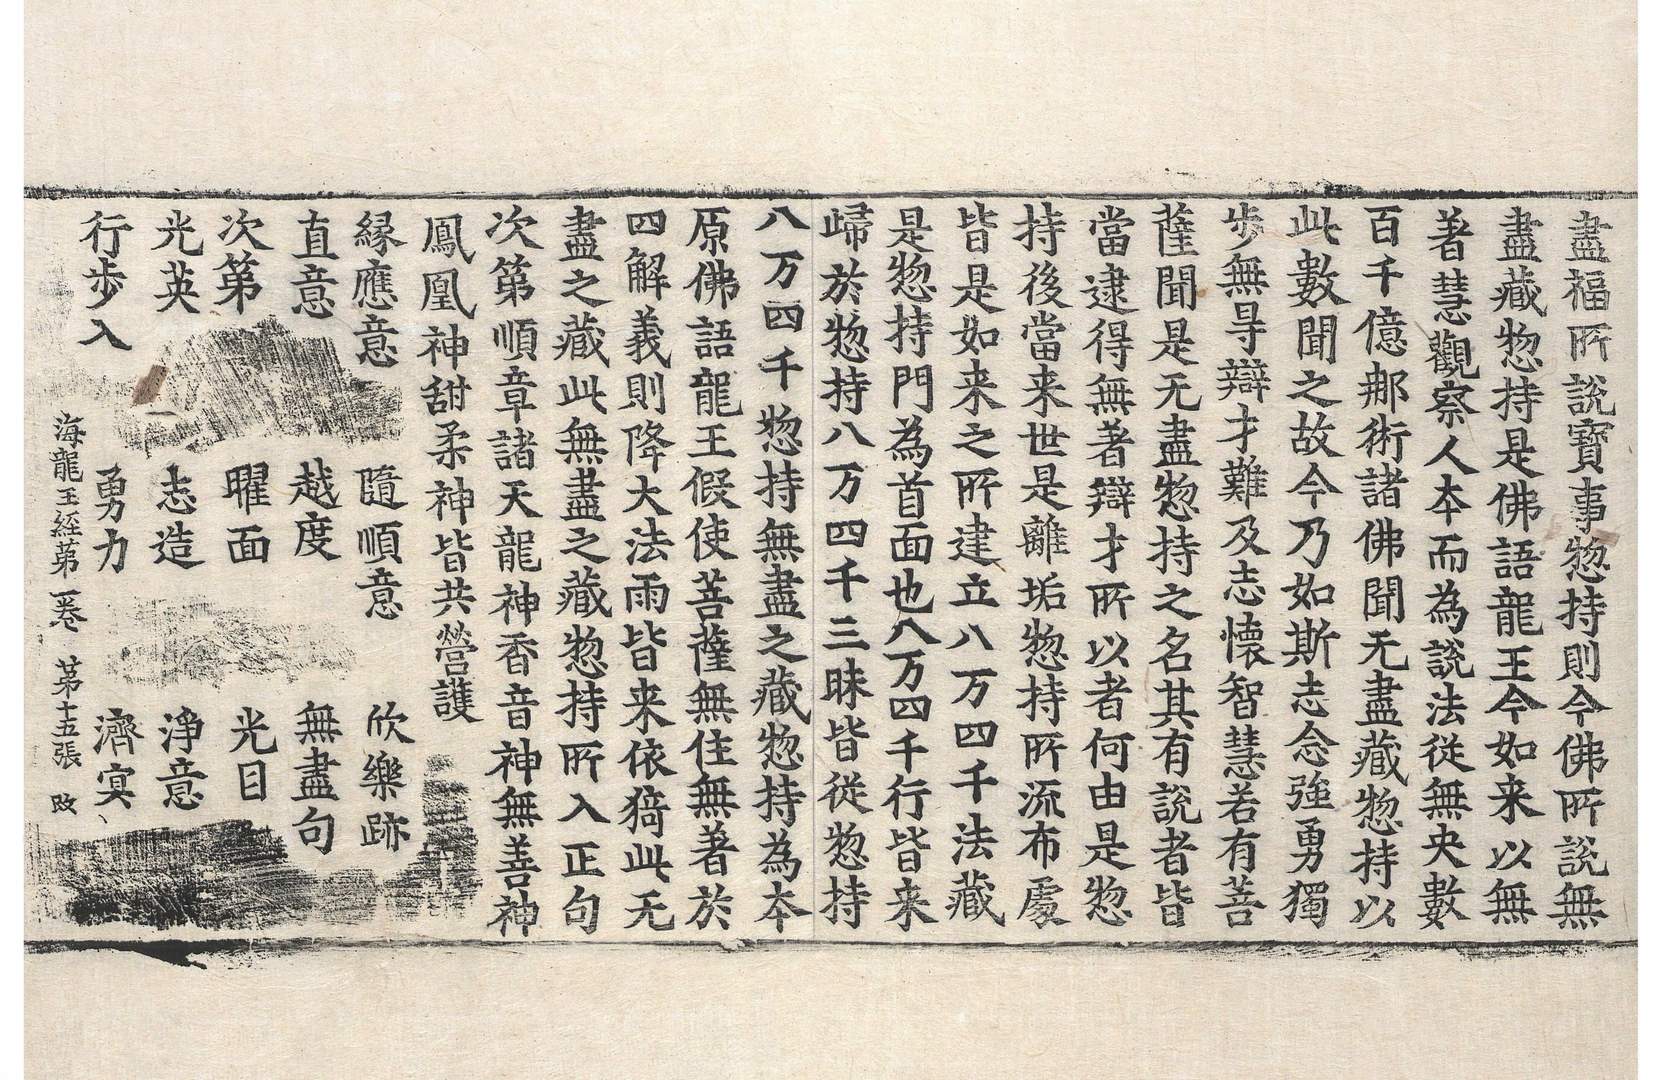 盡福所說寶事惣持則今佛所說無
盡藏惣持是佛語龍王今如来以無
著慧觀察人本而為說法從無央數
百千億那術諸佛聞无盡藏惣持以
此數聞之故今乃如斯志念強勇獨
步無㝵辯才難及志懷智慧若有菩
薩聞是无盡惣持之名其有說者皆
當逮得無著辯才所以者何由是惣
持後當来世是離垢惣持所流布處
皆是如来之所建立八万四千法藏
是惣持門為首面也八万四千行皆来
歸於惣持八万四千三昧皆從惣持
八万四千惣持無盡之藏惣持為本
原佛語龍王假使菩薩無住無著於
四解義則降大法雨皆来依猗此无
盡之藏此無盡之藏惣持所入正句
次第順章諸天龍神香音神無善神
鳳凰神甜柔神皆共營護
緣應意 隨順意 欣樂跡
直意 越度 無盡句
次第 曜面 光目
光英 志造 淨意
行步入 勇力 濟㝠
海龍王經第一卷 第十五張 改